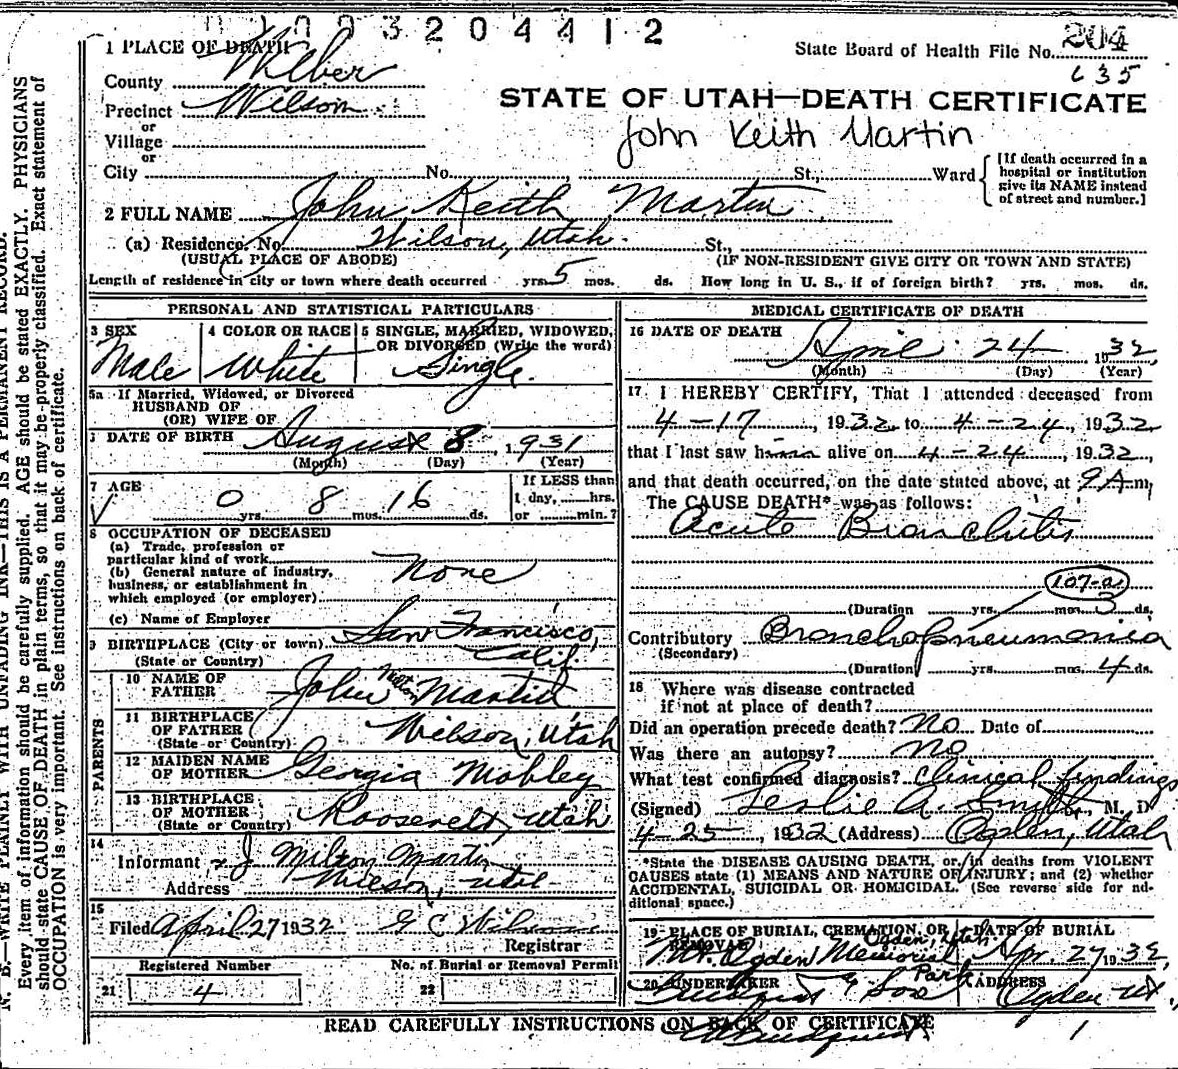 0093204412
State Board of Health File No. 204
635
1 PLACE OF DEATH
County Weber
Precinct Wilson
or
Village
or
City No. St., Ward
[If death occurred in a hospital or institution give its NAME instead of street and number.]
STATE OF UTAH—DEATH CERTIFICATE
John Keith Martin
2 FULL NAME John Keith Martin
(a) Residence. No. Wilson, Utah. St.,
(USUAL PLACE OF ABODE) (IF NON-RESIDENT GIVE CITY OR TOWN AND STATE)
Length of residence in city or town where death occurred yrs. 5 mos. ds. How long in U. S., if of foreign birth? yrs. mos. ds.
PERSONAL AND STATISTICAL PARTICULARS
3 SEX
Male
4 COLOR OR RACE
White
5 SINGLE, MARRIED, WIDOWED, OR DIVORCED (Write the word)
Single.
5a If Married, Widowed, or Divorced
HUSBAND OF
(OR) WIFE OF
DATE OF BIRTH August 8, 1931
(Month) (Day) (Year)
7 AGE
0 yrs. 8 mos. 16 ds.
If LESS than
1 day, hrs.
or min.?
8 OCCUPATION OF DECEASED
(a) Trade, profession or
particular kind of work
(b) General nature of industry,
business, or establishment in
which employed (or employer)
None
(c) Name of Employer
9 BIRTHPLACE (City or town) San Francisco,
(State or Country) Calif.
PARENTS
10 NAME OF
FATHER John Milton Martin
11 BIRTHPLACE
OF FATHER
(State or Country) Wilson, Utah
12 MAIDEN NAME
OF MOTHER Georgia Mobley
13 BIRTHPLACE
OF MOTHER
(State or Country) Roosevelt, Utah
14
Informant J. Milton Martin
Address Wilson, Utah
15
Filed April 27 1932 G C Wilson
Registrar
Registered Number No. of Burial or Removal Permit
21 4 22
MEDICAL CERTIFICATE OF DEATH
16 DATE OF DEATH
April 24 1932,
(Month) (Day) (Year)
17 I HEREBY CERTIFY, That I attended deceased from
4-17, 1932, to 4-24, 1932,
that I last saw him alive on 4-24, 1932,
and that death occurred, on the date stated above, at 9 A m,
The CAUSE DEATH* was as follows:
Acute Bronchitis
107-a
(Duration yrs. mos. 3 ds.
Contributory Bronchopneumonia
(Secondary)
(Duration yrs. mos. 4 ds.
18 Where was disease contracted
if not at place of death?
Did an operation precede death? No Date of
Was there an autopsy? no
What test confirmed diagnosis? Clinical findings
(Signed) Leslie A. Smith, M. D
4-25, 1932 (Address) Ogden, Utah
*State the DISEASE CAUSING DEATH, or, in deaths from VIOLENT
CAUSES state (1) MEANS AND NATURE OF INJURY; and (2) whether
ACCIDENTAL, SUICIDAL OR HOMICIDAL. (See reverse side for additional space.)
19 PLACE OF BURIAL, CREMATION, OR REMOVAL
Ogden, Utah
Mt. Ogden Memorial Park
DATE OF BURIAL
Apr. 27 1932,
20 UNDERTAKER
& Son
ADDRESS
Ogden Ut.,
READ CAREFULLY INSTRUCTIONS ON BACK OF CERTIFICATE
1
N. B.—WRITE PLAINLY WITH UNFADING INK—THIS IS A PERMANENT RECORD.
Every item of information should be carefully supplied. AGE should be stated EXACTLY. PHYSICIANS
should state CAUSE OF DEATH in plain terms, so that it may be properly classified. Exact statement of
OCCUPATION is very important. See instructions on back of certificate.